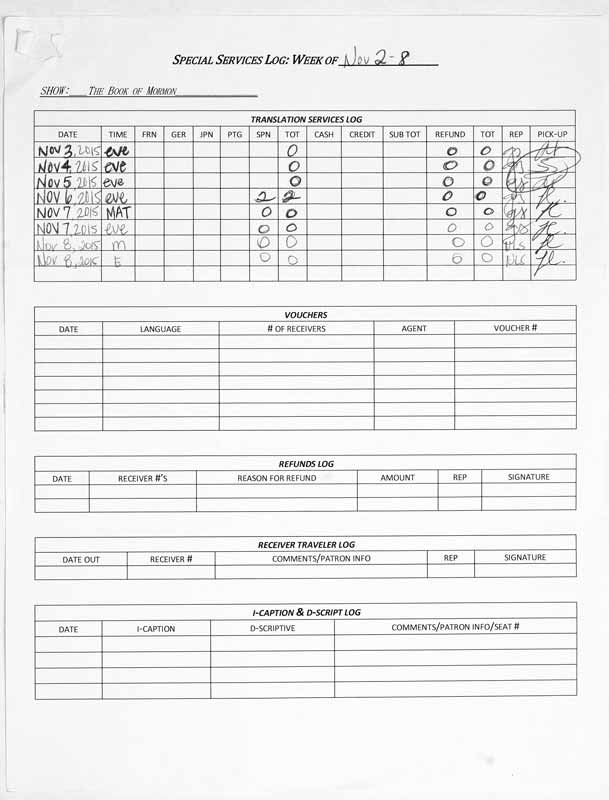 SPECIAL SERVICES LOG: WEEK OF Nov 2-8
SHOW: THE BOOK OF MORMON
TRANSLATION SERVICES LOG
DATE TIME FRN GER JPN PTG SPN TOT CASH CREDIT SUB TOT REFUND TOT REP PICK-UP
NOV 3, 2015 eve 0 0 0
NOV 4, 2015 eve 0 0 0
NOV 5, 2015 eve 0 0 0
NOV 6, 2015 eve 2 2 0 0
NOV 7, 2015 MAT 0 0 0 0
NOV 7, 2015 eve 0 0 0 0
Nov 8, 2015 M 0 0 0 0
Nov 8, 2015 E 0 0 0 0 NLS
VOUCHERS
DATE LANGUAGE # OF RECEIVERS AGENT VOUCHER #
REFUNDS LOG
DATE RECEIVER #'S REASON FOR REFUND AMOUNT REP SIGNATURE
RECEIVER TRAVELER LOG
DATE OUT RECEIVER # COMMENTS/PATRON INFO REP SIGNATURE
I-CAPTION & D-SCRIPT LOG
DATE I-CAPTION D-SCRIPTIVE COMMENTS/PATRON INFO/SEAT #